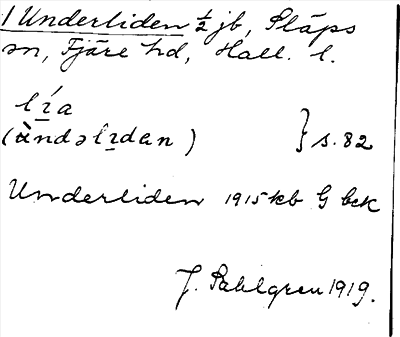 1 Underliden ½ jb, Släps
sn, Fjäre hd, Hall. l.
lɪ́a
(ùndəlɪdan) } s. 82
Underliden 1915 kb G bck
J. Sahlgren 1919.